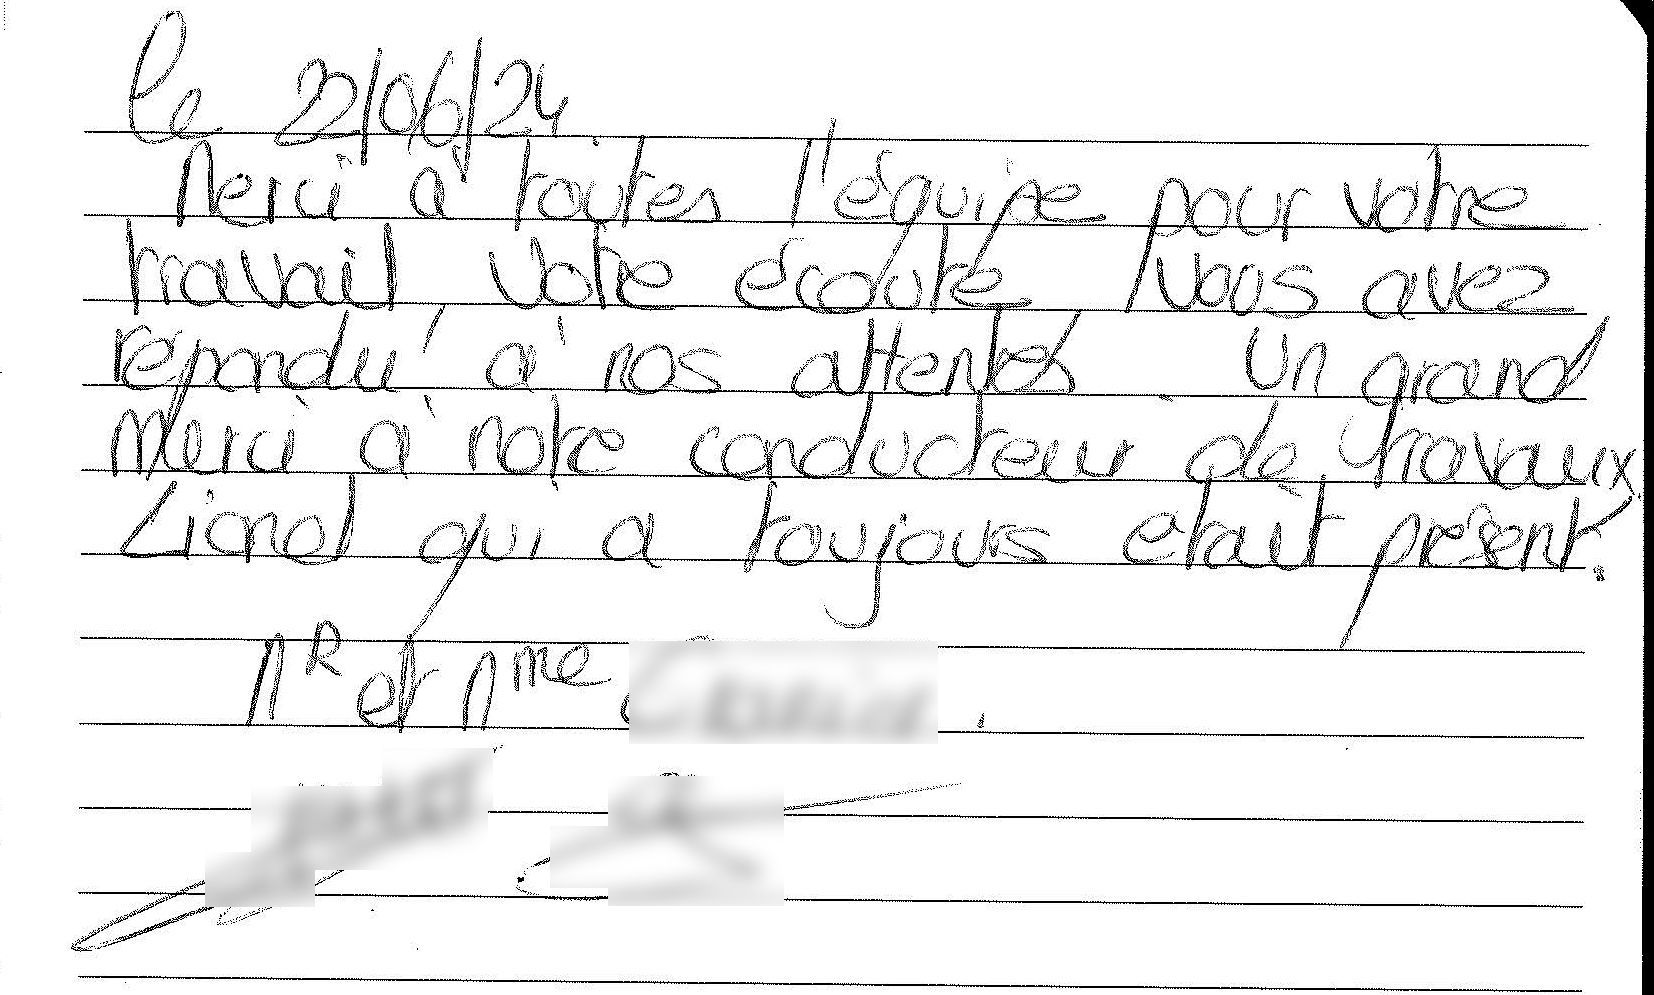 le 22/06/24
Merci à toutes l'équipe pour votre
travail votre écoute, vous avez
répondu à nos attentes. Un grand
merci à notre conducteur de travaux
Lionel qui a toujours était présent.
Mr et Mme